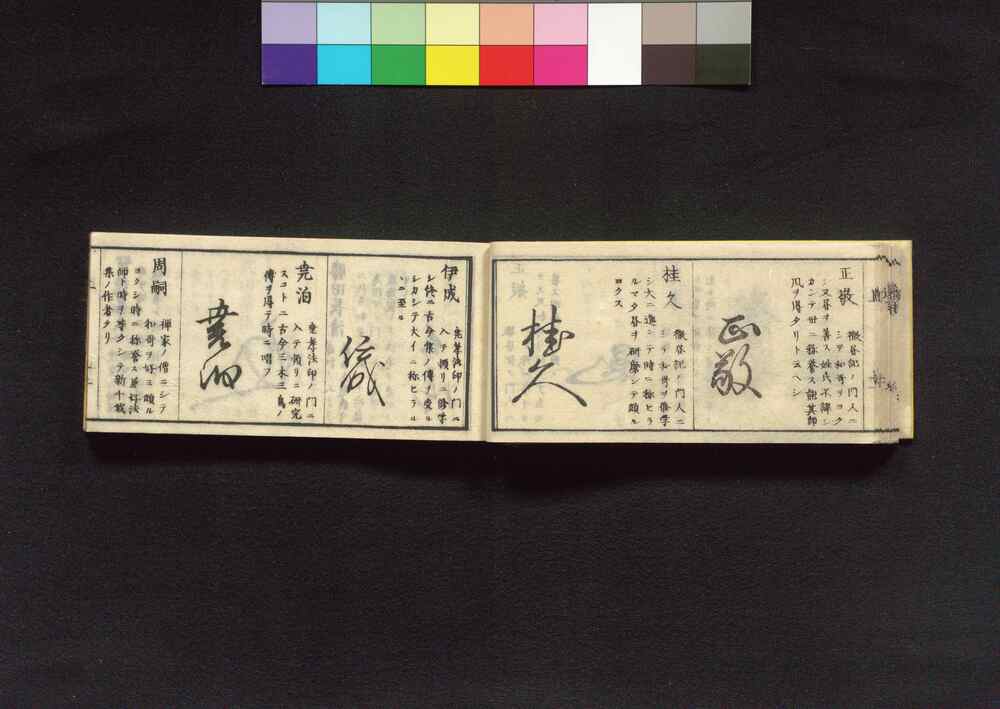 正敬
徹書記ノ門人ニ
シテ和哥ヲヨク
シ又書ヲ善ス姓氏不詳シ
カシテ世ニ称誉ス能其師
風ヲ得タリト云ヘシ
正敬
桂久
徹書記ノ門人ニ
シテ和哥ヲ修学
シ大ニ進ンテ時ニ称ヒラ
ルマタ書ヲ研磨シテ頗ル
ロクス
桂久
伊成
尭孝法印ノ門ニ
入テ頻リニ修学
シ終ニ古今集ノ傳ヲ受ル
シカシテ大イニ称ヒラル
ヽニ至ル
尭泊
尭孝法印ノ門ニ
入テ頻リニ研究
スコトニ古今三木三鳥ノ
傳ヲ得テ時ニ唱フ
尭泊
周嗣
禅家ノ僧ニシテ
和哥ヲ好ミ頗ル
ヨクシ時ニ称誉ス兼好法
師ト時ヲ等クシテ新千載
集ノ作者タリ